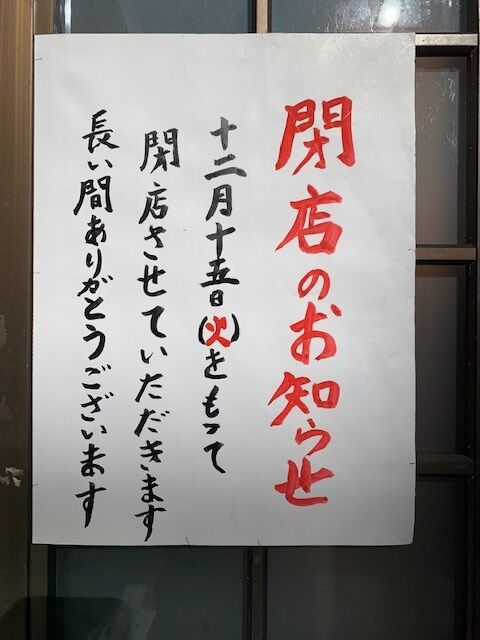 閉店のお知らせ
十二月十五日(火)をもって
閉店させていただきます
長い間ありがとうございます